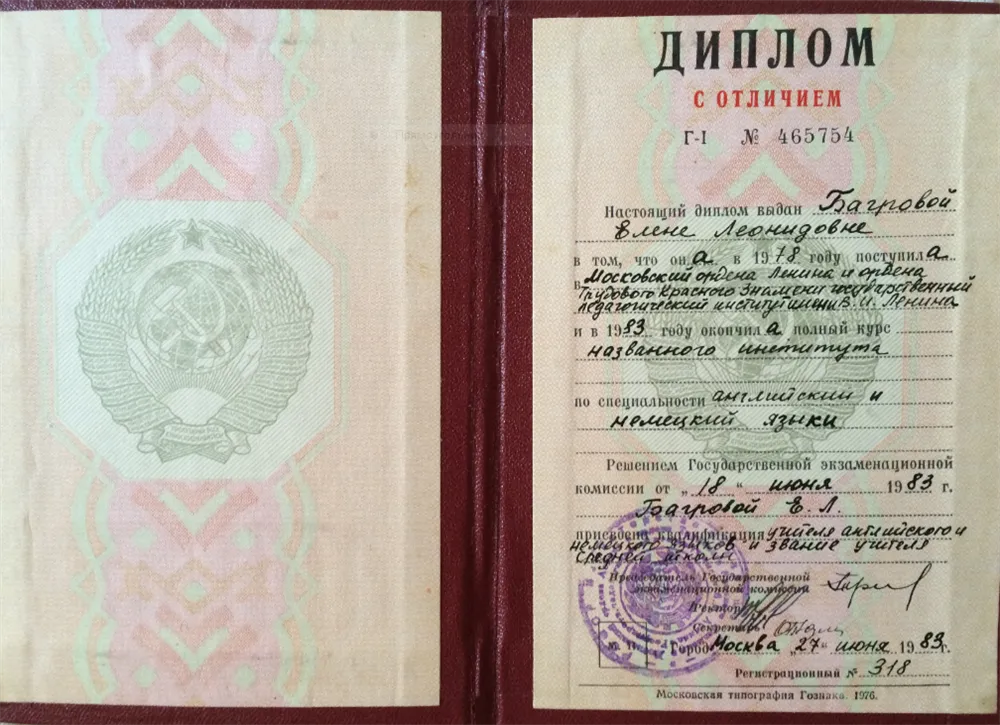 ДИПЛОМ
С ОТЛИЧИЕМ
Г-I № 465754
Настоящий диплом выдан Багровой
Елене Леонидовне
в том, что она в 1978 году поступила
в Московский ордена Ленина и ордена
Трудового Красного Знамени государственный
педагогический институт имени В. И. Ленина
и в 1983 году окончила полный курс
названного института
по специальности английский и
немецкий языки
Решением Государственной экзаменационной
комиссии от „18“ июня 1983 г.
Багровой Е. Л.
присвоена квалификация учителя английского и
немецкого языков и звание учителя
средней школы
Председатель Государственной
экзаменационной комиссии
Ректор
Секретарь
Город Москва „27“ июня 1983г.
Регистрационный № 318
Московская типография Гознака. 1976.